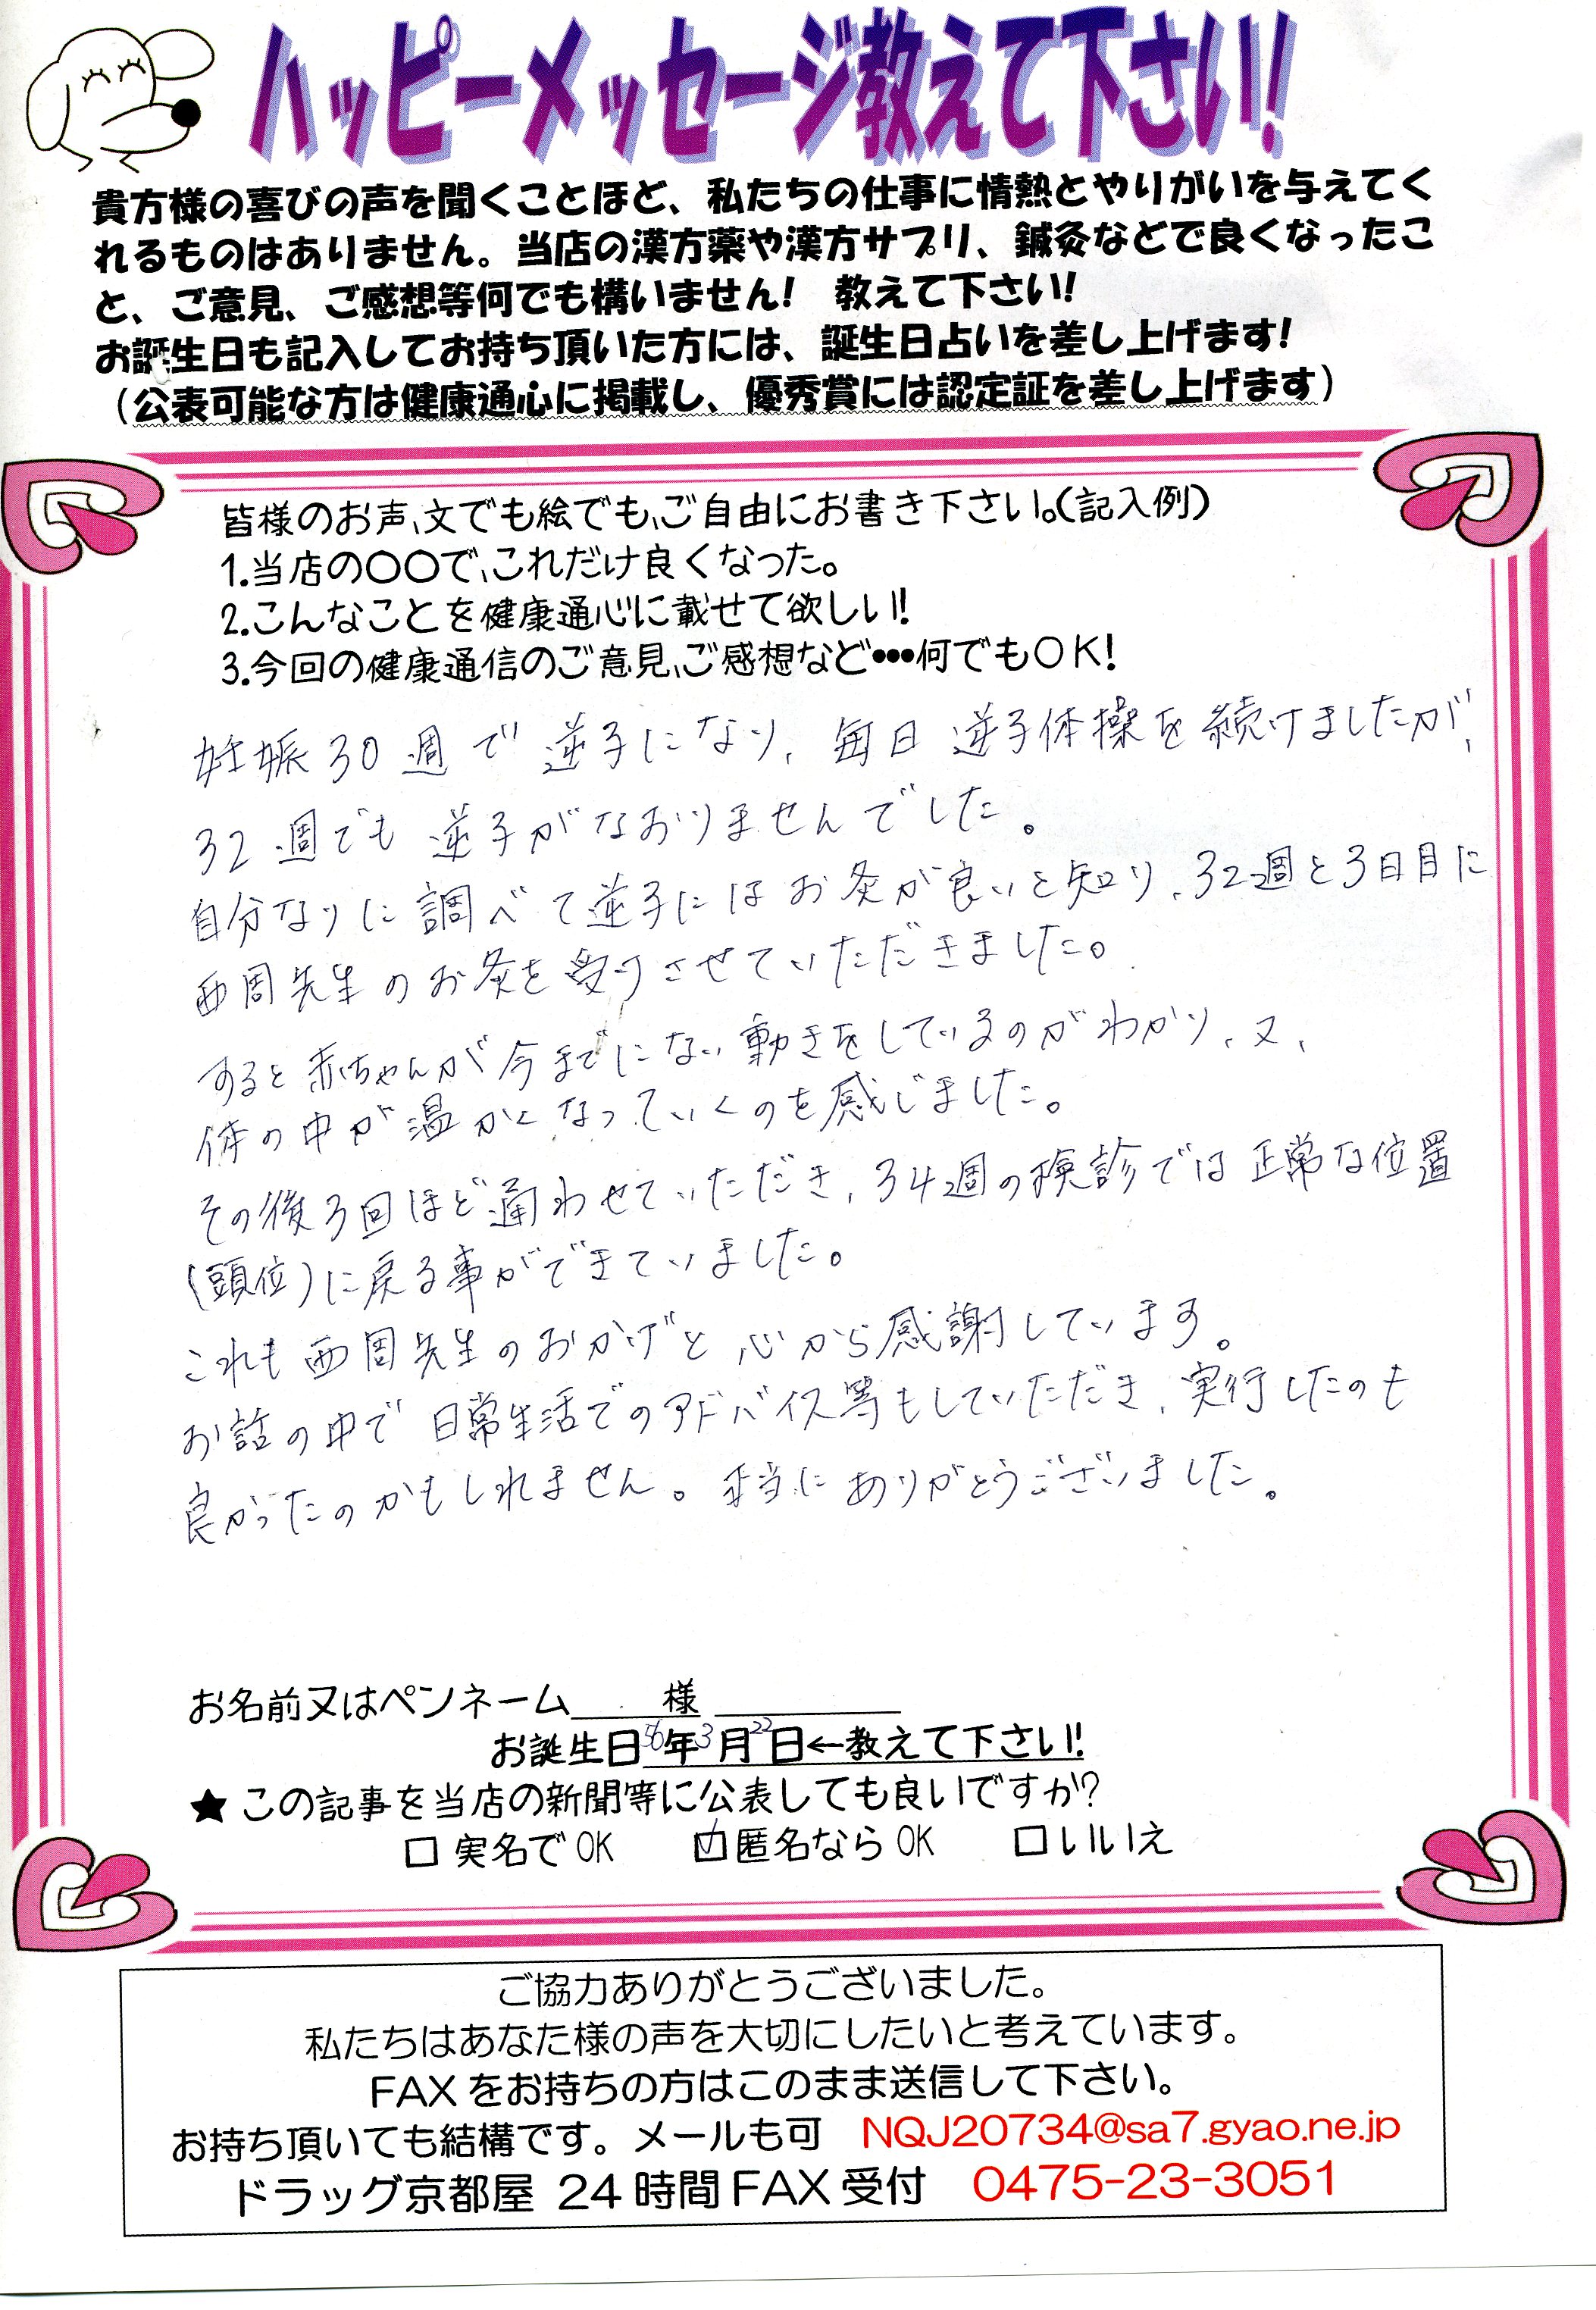 ハッピーメッセージ教えて下さい!
貴方様の喜びの声を聞くことほど、私たちの仕事に情熱とやりがいを与えてく
れるものはありません。当店の漢方薬や漢方サプリ、鍼灸などで良くなったこ
と、ご意見、ご感想等何でも構いません! 教えて下さい!
お誕生日も記入してお持ち頂いた方には、誕生日占いを差し上げます!
(公表可能な方は健康通心に掲載し、優秀賞には認定証を差し上げます)
皆様のお声、文でも絵でも、ご自由にお書き下さい。(記入例)
1.当店の〇〇で、これだけ良くなった。
2.こんなことを健康通心に載せて欲しい!
3.今回の健康通信のご意見、ご感想など•••何でもOK!
妊娠30週で逆子になり、毎日逆子体操を続けましたが、
32週でも逆子がなおりませんでした。
自分なりに調べて逆子にはお灸が良いと知り、32週と3日目に
西周先生のお灸を受けさせていただきました。
すると赤ちゃんが今までにない動きをしているのがわかり、又、
体の中が温かくなっていくのを感じました。
その後3回ほど通わせていただき、34週の検診では正常な位置
(頭位)に戻る事ができていました。
これも西周先生のおかげと心から感謝しています。
お話の中で日常生活でのアドバイス等もしていただき、実行したのも
良かったのかもしれません。本当にありがとうございました。
お名前又はペンネーム 様
お誕生日56年3月22日←教えて下さい!
★この記事を当店の新聞等に公表しても良いですか?
□実名でOK ☑匿名ならOK □いいえ
ご協力ありがとうございました。
私たちはあなた様の声を大切にしたいと考えています。
FAXをお持ちの方はこのまま送信して下さい。
お持ち頂いても結構です。メールも可 NQJ20734@sa7.gyao.ne.jp
ドラッグ京都屋 24時間FAX受付 0475-23-3051